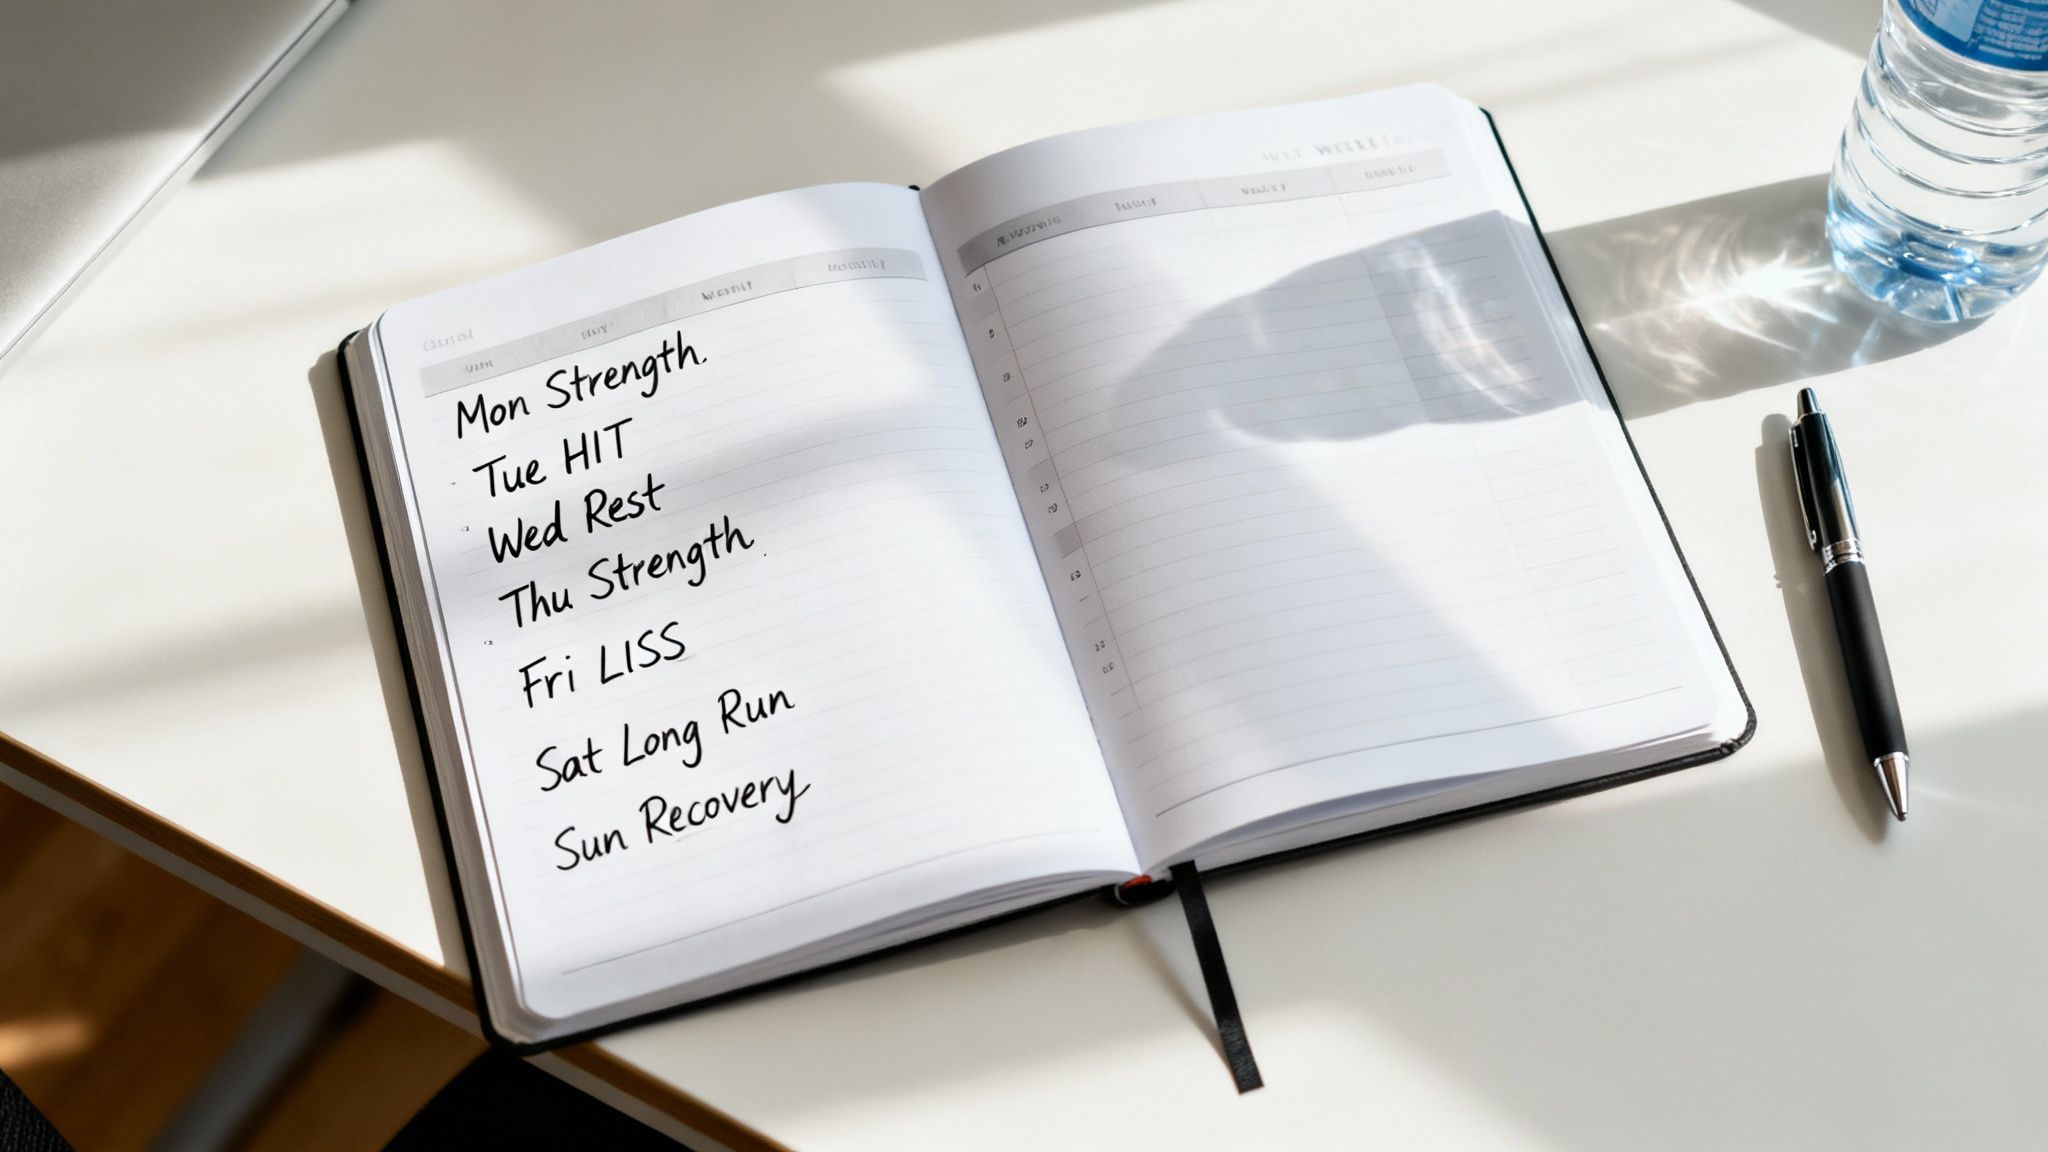 Mon Strength.
Tue HIT
Wed Rest
Thu Strength
Fri LISS
Sat Long Run
Sun Recovery